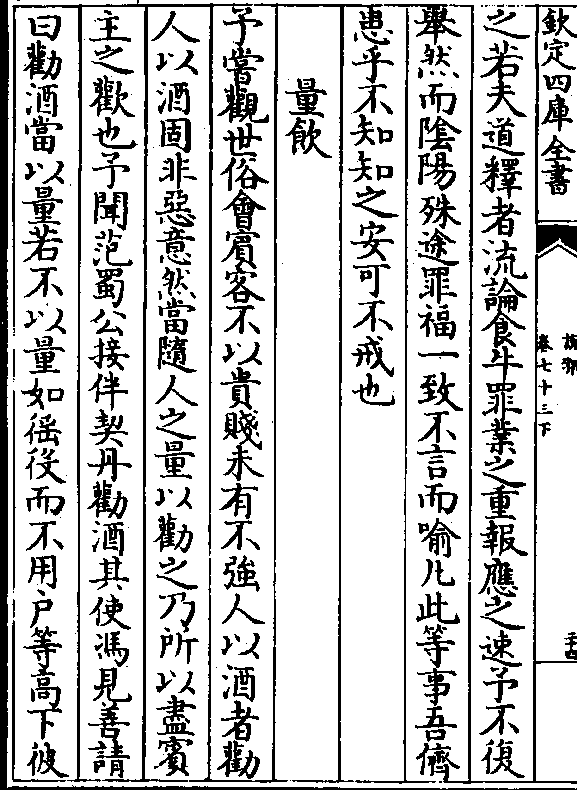 欽定四庫全書
說郛
卷七十三下
之若夫道釋者流論食牛罪業之重報應之速予不復
舉然而陰陽殊途罪福一致不言而喻凡此等事吾儕
患乎不知知之安可不戒也
量飲
予嘗觀世俗會賓客不以貴賤未有不強人以酒者勸
人以酒固非惡意然當隨人之量以勸之乃所以盡賓
主之歡也予聞范蜀公接伴契丹勸酒其使馮見善請
曰勸酒當以量若不以量如徭役而不用户等高下彼